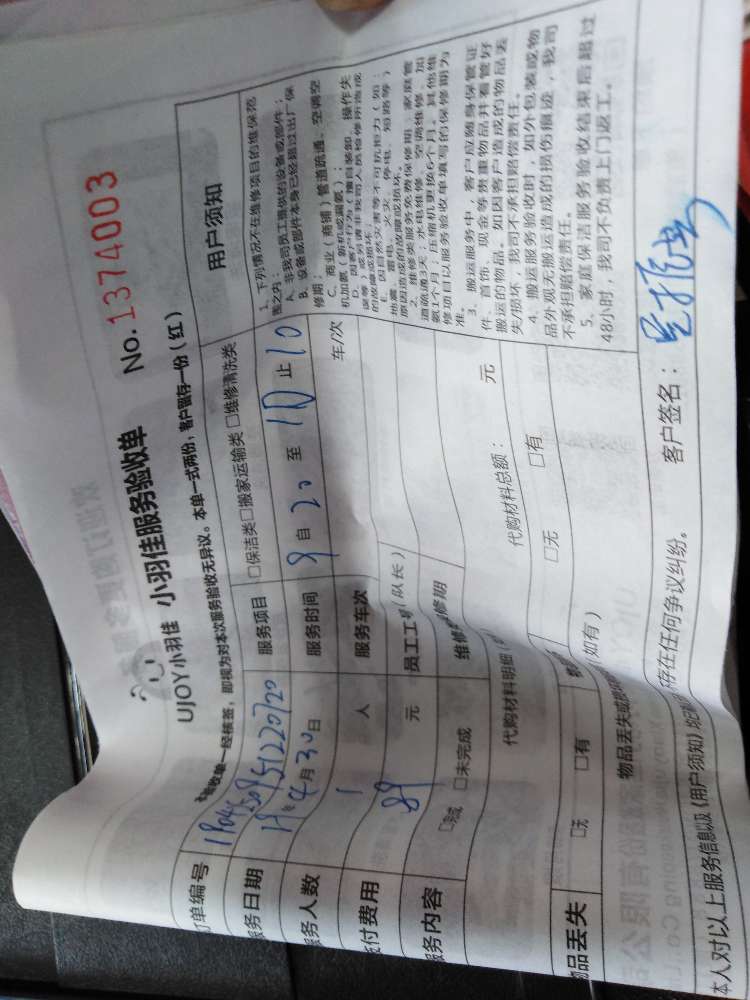 UJOY小羽佳 小羽佳服务验收单 No.1374003
本验收单一经核签，即视为对本次服务验收无异议。本单一式两份，客户留存一份（红）
订单编号
服务项目 □保洁类□搬家运输类 □维修清洗类
服务日期 19年4月30日
服务时间 9 自 20 至 10 止 10
服务人数 1 人
服务车次 车/次
支付费用 89 元
员工工号（队长）
服务内容 □完成 □未完成
维修保修期
代购材料明细
代购材料总额： 元
物品丢失 □无 □有
□无 □有
物品丢失或损坏 （如有）
本人对以上服务信息以及《用户须知》
存在任何争议纠纷。
客户签名：
用户须知
1、下列情况不在维修项目的维保范
围之内：
A、非我司员工提供的设备或部件；
B、设备或部件本身已经超过出厂保
修期；
C、商业（商铺）管道疏通、空调空
机加氨（新机或漏氨）；
D、因客户行为（擅自装卸、操作失
误等）或另请非我司人员检修所造成
的故障或损坏；
E、因自然灾害等不可抗拒力（如：
地震、雷电、火灾、停电、短路等）
原因造成的故障或损坏。
2、维修类服务免费保修期：家庭管
道疏通3天；水电维修、空调维修、加
氨1个月；压缩机更换6个月。其他维
修项目以服务验收单填写的保修期为
准。
3、搬运服务中，客户应随身保管证
件、首饰、现金等贵重物品并看管好
搬运的物品。如因客户造成的物品丢
失/损坏，我司不承担赔偿责任。
4、搬运服务验收时，如外包装或物
品外观无搬运造成的损伤痕迹，我司
不承担赔偿责任。
5、家庭保洁服务验收结束后超过
48小时，我司不负责上门返工。